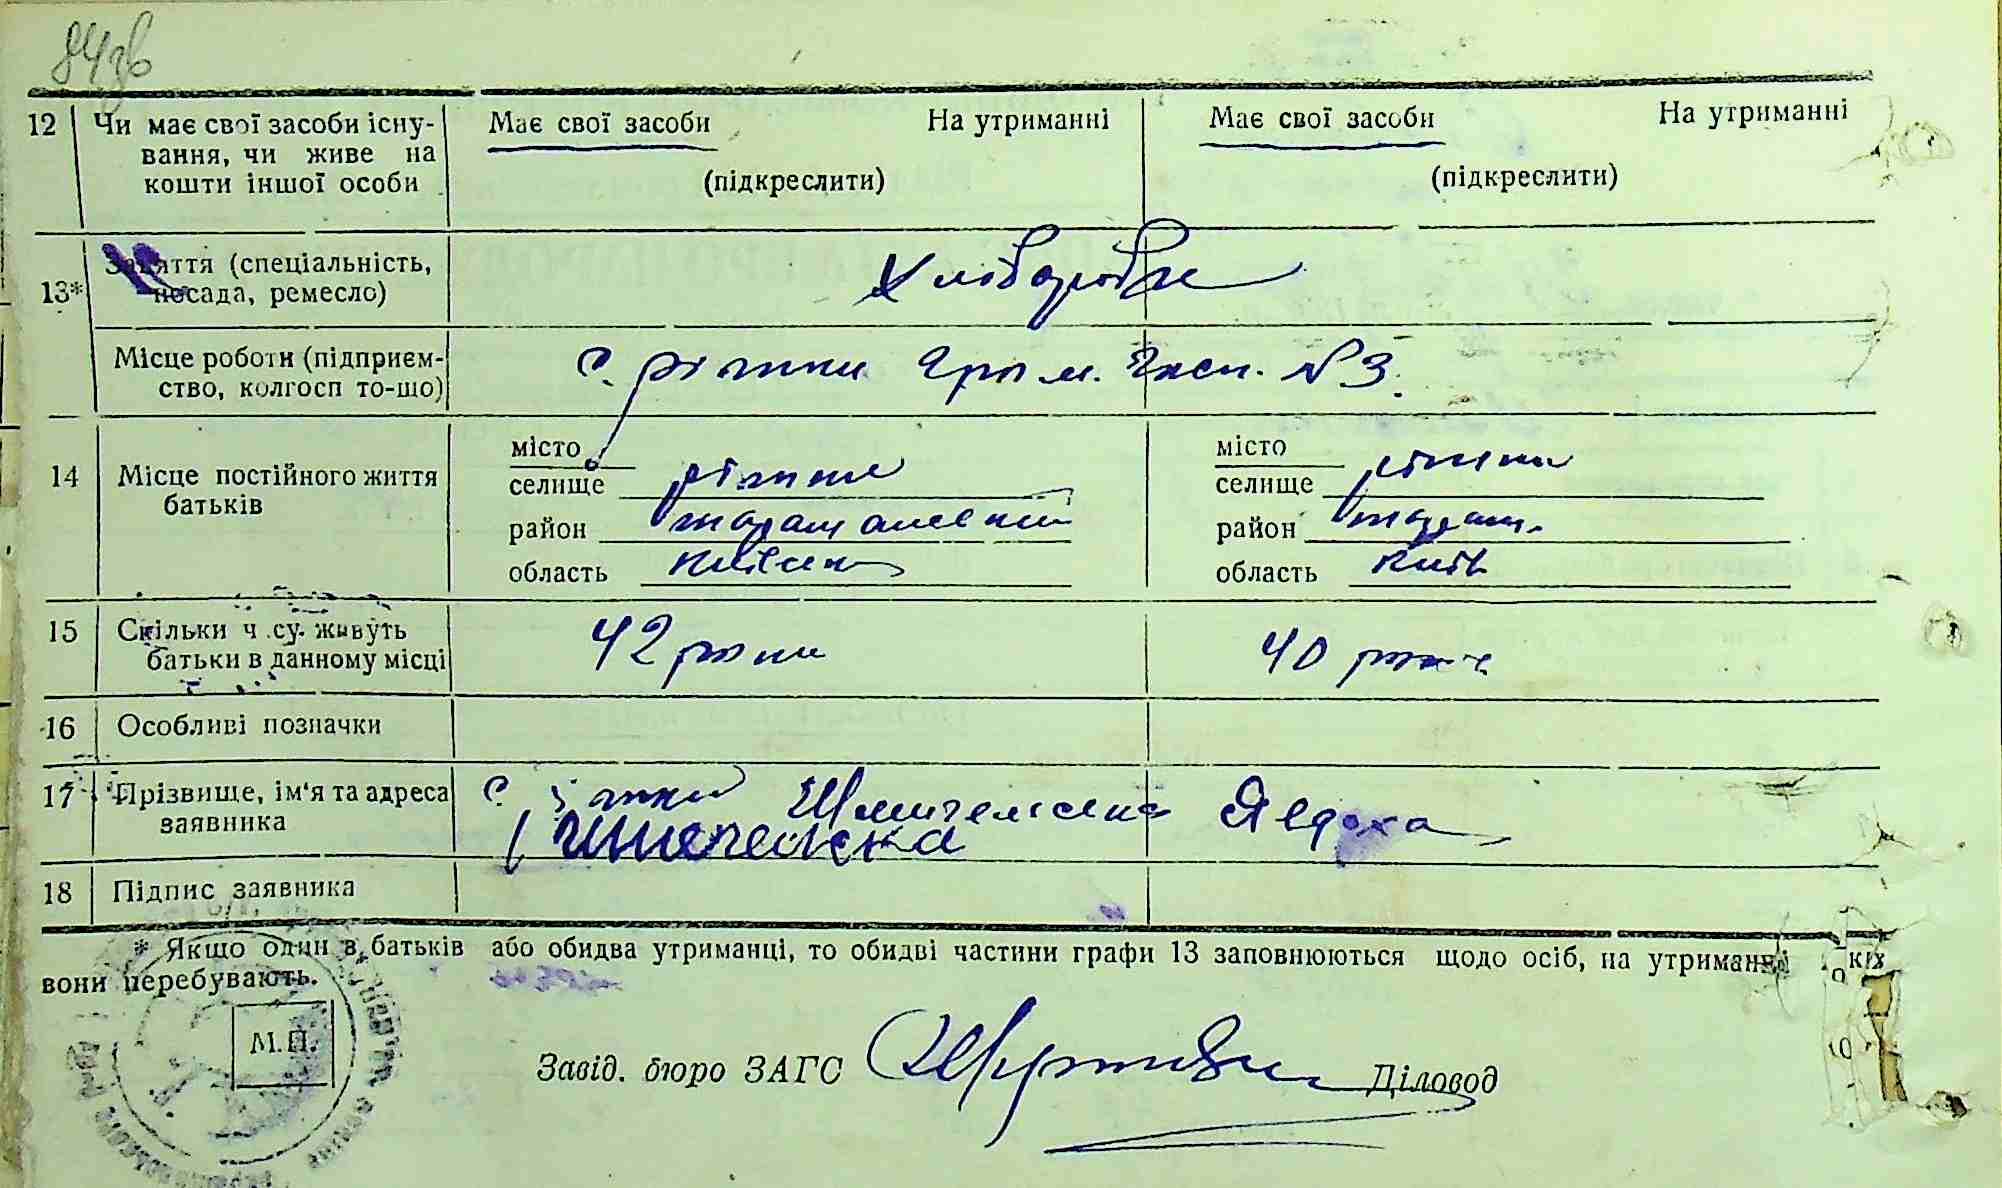 84зв
12 Чи має свої засоби існу- Має свої засоби На утриманні Має свої засоби На утриманні
вання, чи живе на
кошти іншої особи (підкреслити) (підкреслити)
13* Заняття (спеціальність, Хлібороби
посада, ремесло)
Місце роботи (підприєм- с. Ріжки Гром. Госп. №3.
ство, колгосп то-що)
14 Місце постійного життя місто місто
батьків селище Ріжки селище Ріжки
район Таращанский район Таращ.
область Київська область Київ
15 Скільки часу живуть 42 роки 40 роки
батьки в данному місці
16 Особливі позначки
17 Прізвище, ім'я та адреса с. Ріжки Явдоха
заявника
18 Підпис заявника
* Якщо один з батьків або обидва утриманці, то обидві частини графи 13 заповнюються щодо осіб, на утриманні яких
вони перебувають.
М.П.
Завід. бюро ЗАГС Діловод